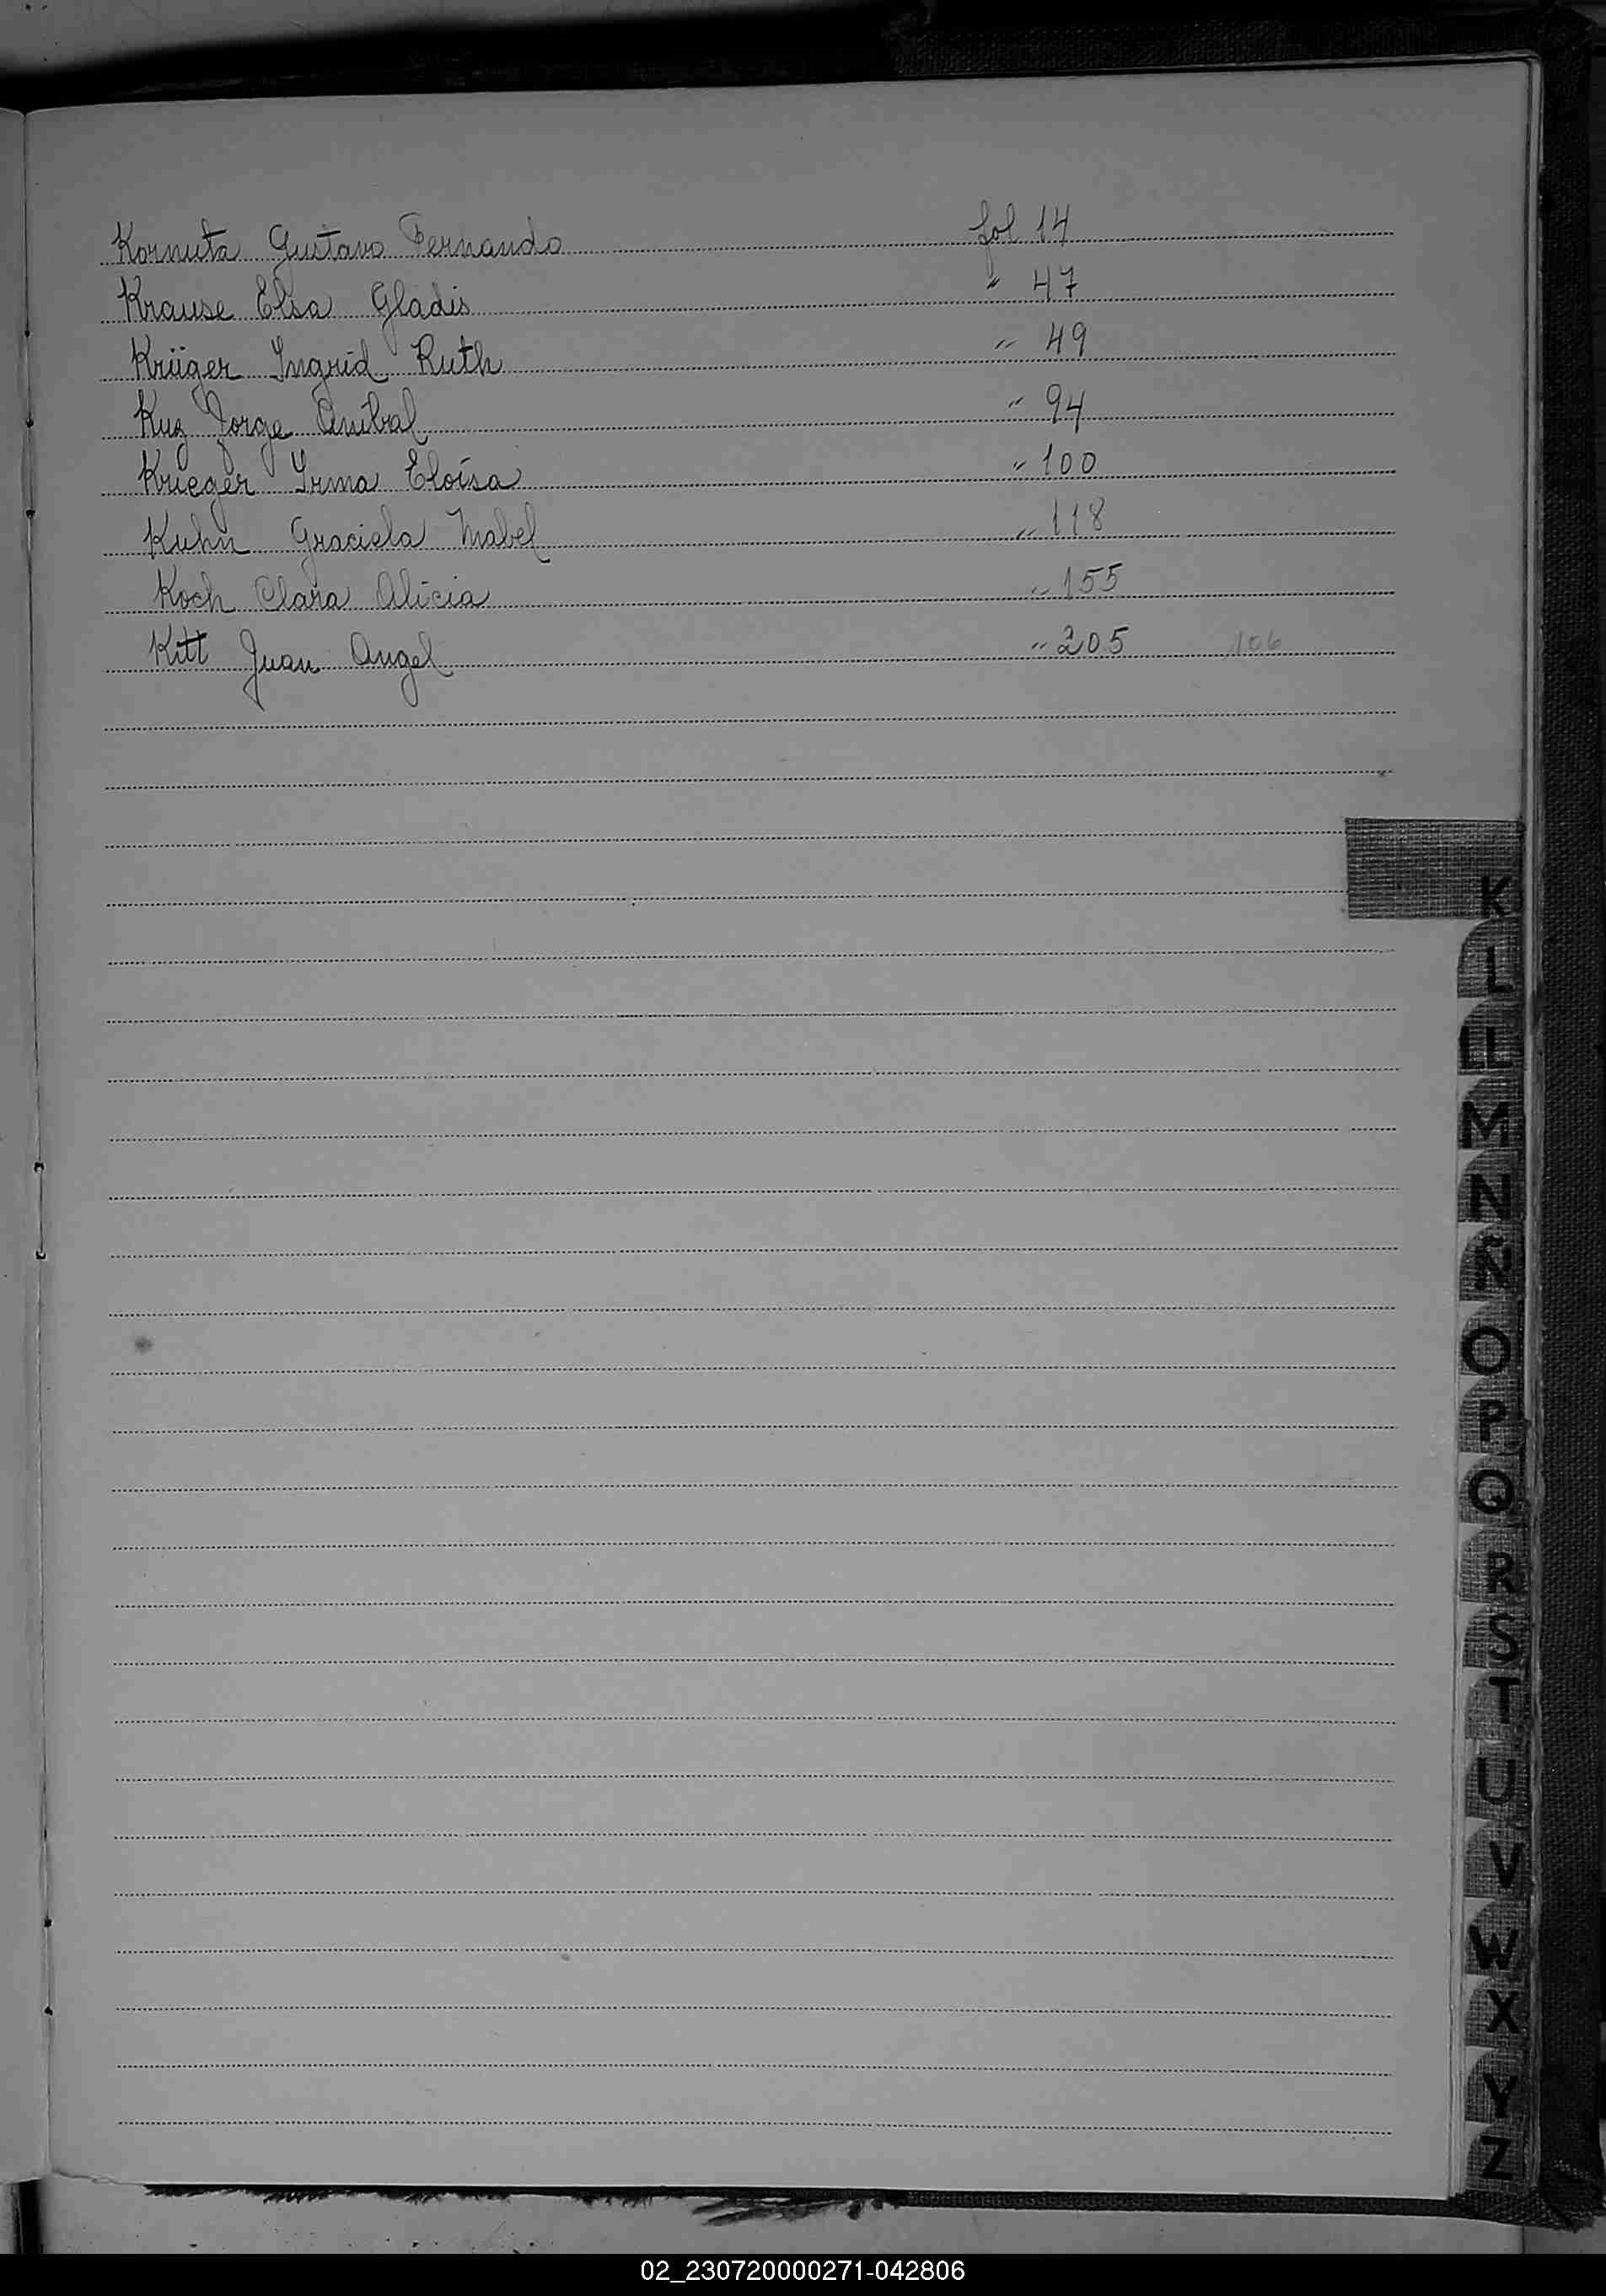 Kornuta Gustavo Fernando fol 14
Krause Elsa Gladis " 47
Krüger Ingrid Ruth " 49
Kuz Jorge Anibal " 94
Krieger Irma Eloísa " 100
Kuhn Graciela Mabel " 118
Koch Clara Alicia " 155
Kitt Juan Angel " 205 106
K
L
LL
M
N
Ñ
O
P
Q
R
S
T
U
V
W
X
Y
Z
02_230720000271-042806